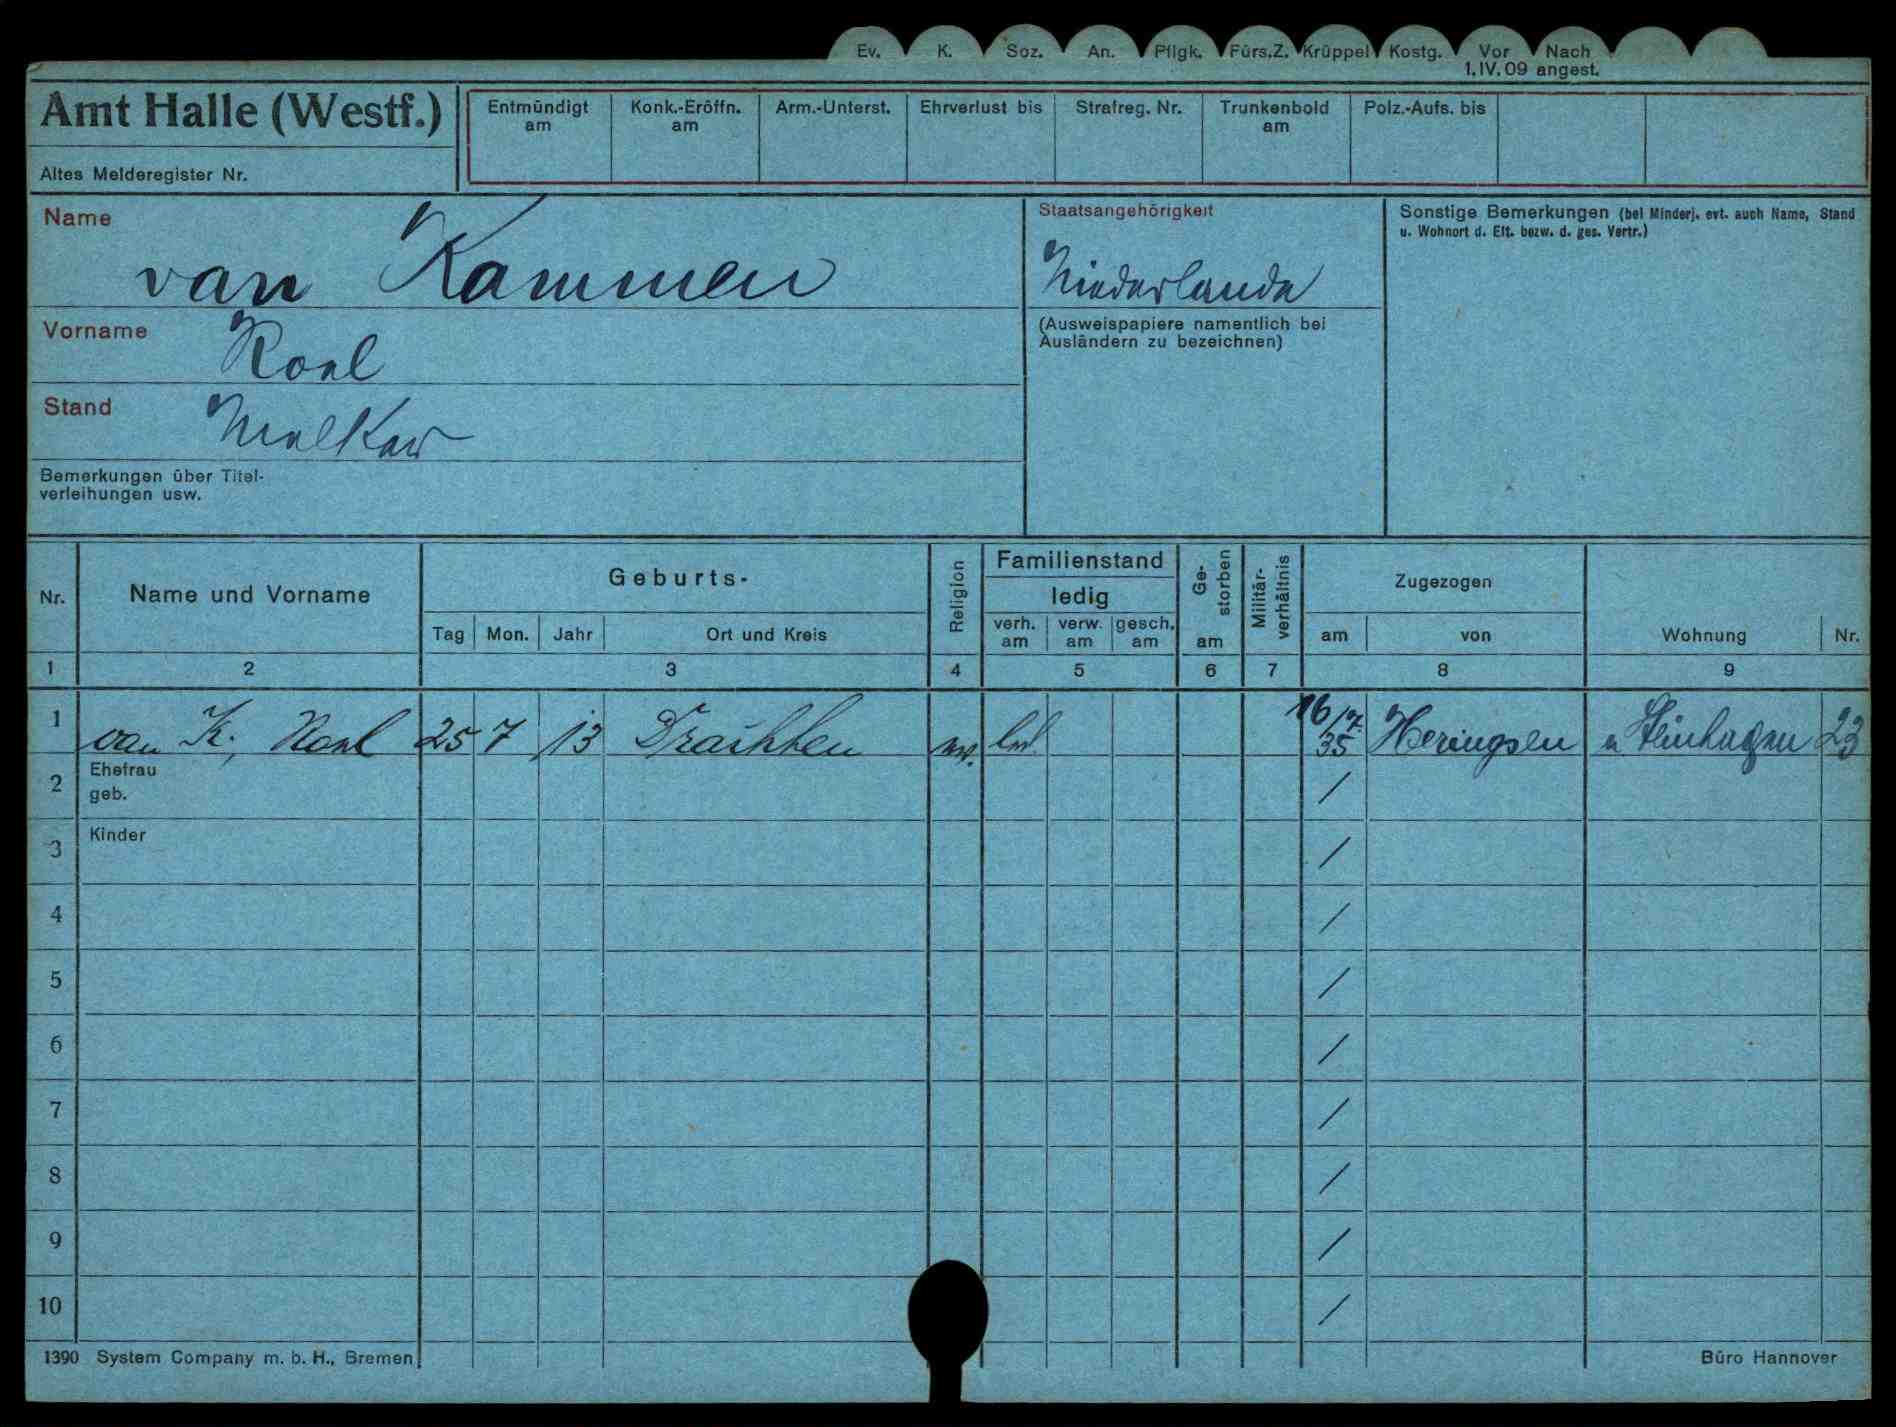 Ev. K. Soz. An. Pflgk. Fürs.Z. Krüppel Kostg. Vor Nach
1.IV.09 angest.
Amt Halle (Westf.)
Altes Melderegister Nr.
Entmündigt am
Konk.-Eröffn. am
Arm.-Unterst.
Ehrverlust bis
Strafreg. Nr.
Trunkenbold am
Polz.-Aufs. bis
Name
van Kammen
Vorname
Roel
Stand
Melker
Bemerkungen über Titel-
verleihungen usw.
Staatsangehörigkeit
Niederlande
(Ausweispapiere namentlich bei
Ausländern zu bezeichnen)
Sonstige Bemerkungen (bei Minderj. evt. auch Name, Stand
u. Wohnort d. Elt. bezw. d. ges. Vertr.)
Nr. Name und Vorname Geburts- Religion Familienstand Ge-storben am Militär-verhältnis Zugezogen Wohnung Nr.
ledig
Tag Mon. Jahr Ort und Kreis verh. am verw. am gesch. am am von
1 2 3 4 5 6 7 8 9
1 van K., Roel 25 7 13 led. 16/7. 35 Heringsen Steinhagen 23
2 Ehefrau
geb. /
3 Kinder /
4 /
5 /
6 /
7 /
8 /
9 /
10 /
1390 System Company m. b. H., Bremen
Büro Hannover